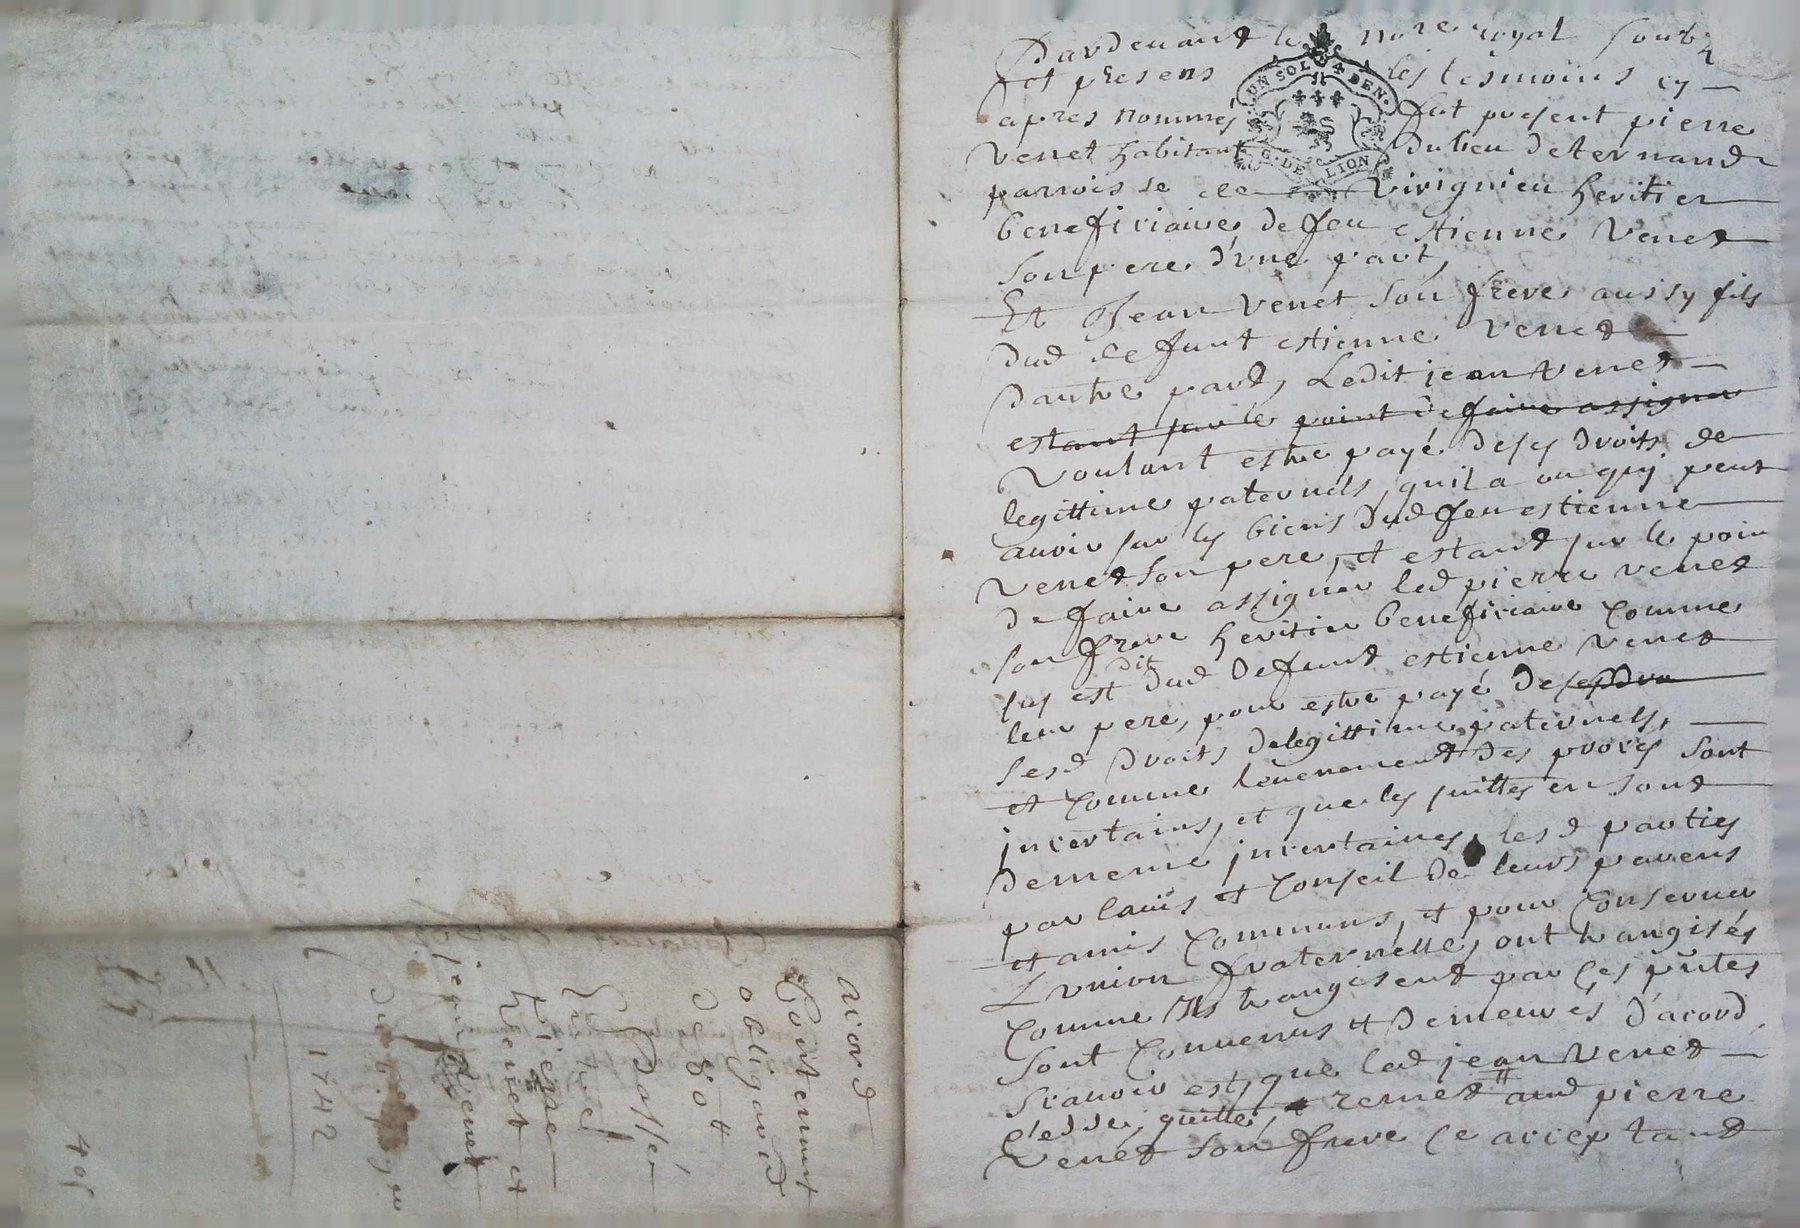 Pardevant le no.re royal soub.
et presens les tesmoins cy
après nommés fut present pierre
venet habitant du lieu de ternand
parroisse de virignieu heritier
beneficiaire de feu estienne Venet
son pere d'une part,
Et Jean venet son frere aussy fils
dud defunt estienne Venet
dautre part, Ledit jean venet
estant sur le point de faire assigner
voulant estre payé de ses droits de
legittime paternels, quil a ou quj peut
avoir sur les biens dud feu estienne
Venet son pere, et estant sur le poin
de faire assigner led pierre venet
son frere heritier beneficiaire comme
dit
sus est dud defunt estienne venet
leur pere, pour estre payé de
sesd droits de legittime paternels,
et comme levenement des proces sont
jncertains, et que les suittes en sont
de meme jncertaines, lesd parties
par lavis et conseil de leurs parens
et amis communs, et pour conserver
L'union fraternelle, ont trangisés
comme Ils trangisent par ces pntes
sont convenus et demeurés d'acord
scavoir est, que led jean Venet
cesde, quitte, remet aud pierre
Venet son frere ce acceptant
UN SOL 4 DEN.
G. DE LION
acord
Contenant
obligaõn
de 80 #
Passé
Entre
Pierre
Venet et
jean Venet
1742
405